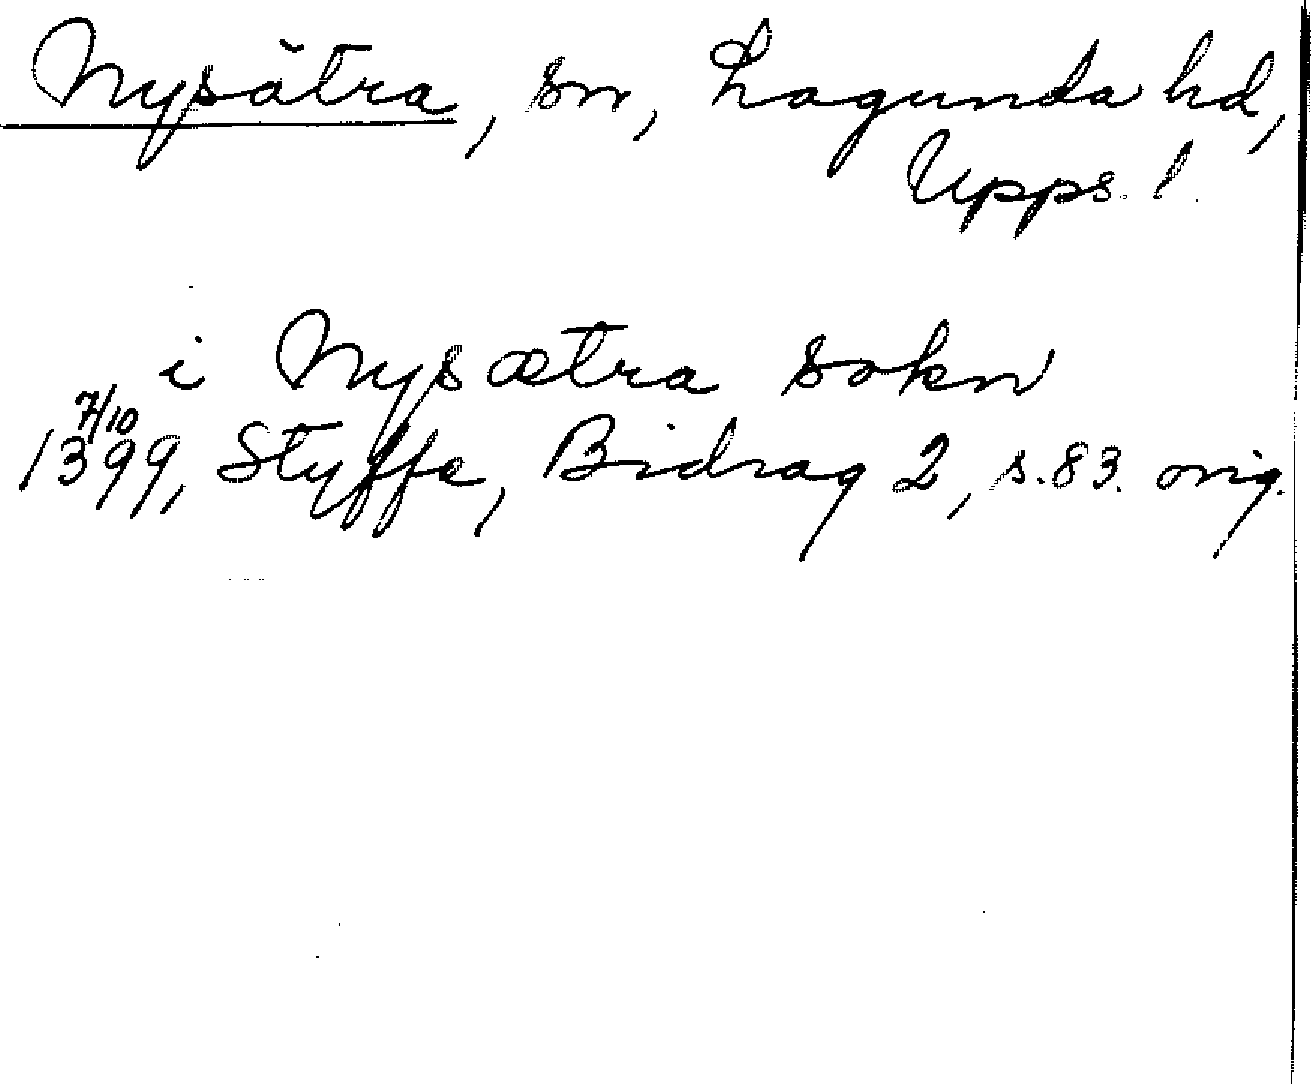 Nysätra, sn, Lagunda hd,
Upps. l.
i Nysætra sokn
7/10
1399, Styffe, Bidrag 2, s. 83. orig.